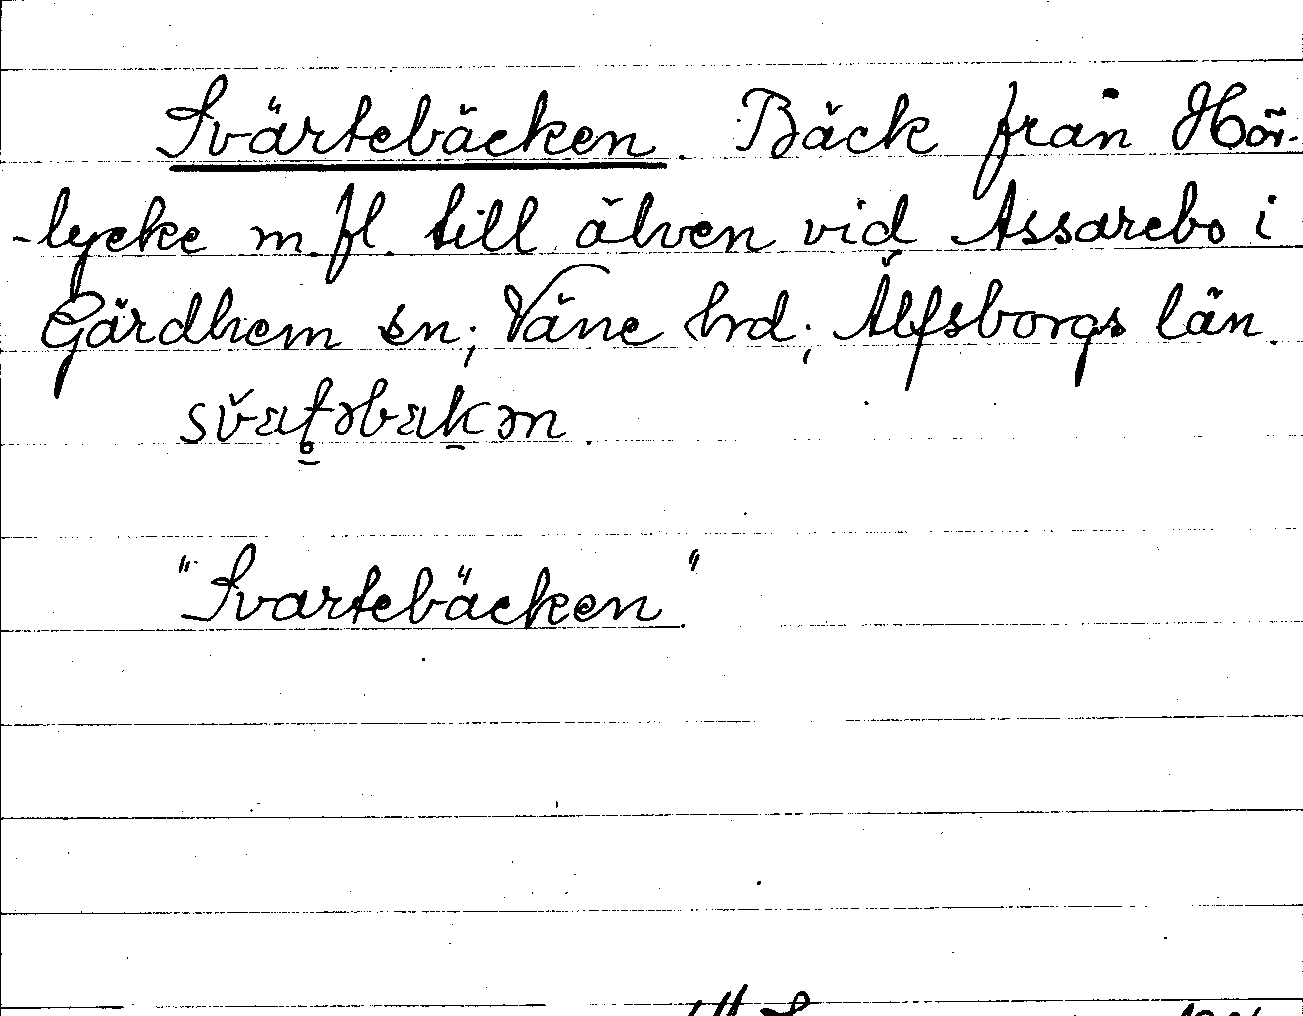 Svärtebäcken. Bäck från Hör-
-lycke m. fl. till älven vid Assarebo i
Gärdhem sn; Väne hrd; Älfsborgs län.
"Svartebäcken"